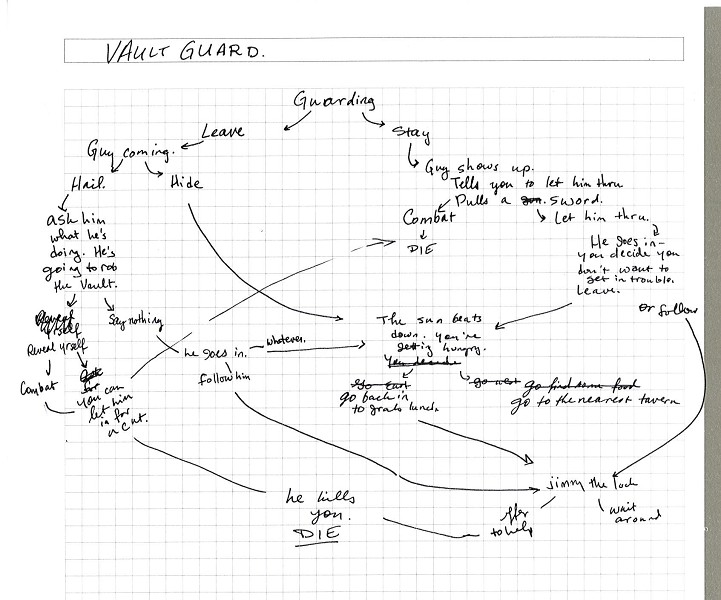 VAULT GUARD.
Guarding
Leave
Stay
Guy coming.
Guy shows up.
Tells you to let him thru
Pulls a gun. sword.
Hail.
Hide
Combat
Let him thru.
DIE
ask him
what he's
doing. He's
going to rob
the Vault.
He goes in—
you decide you
don't want to
get in trouble.
Leave.
or follow
Reveal
yrself
Say nothing
Reveal yrself
The sun beats
down. You're
getting hungry.
You decide
he goes in.
whatever.
follow him
Combat
you can
let him
in for
a cut.
go east
go back in
to grab lunch.
go west go find some food
go to the nearest tavern
jimmy the lock
offer
to help
wait
around
he kills
you.
DIE